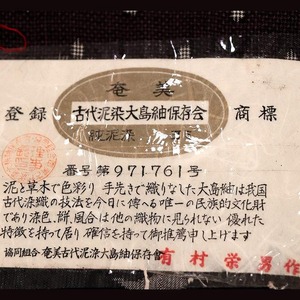 奄美
登録 古代泥染大島紬保存会 商標
純泥染
番号第971761号
泥と草木で色彩り 手先きで織りなした大島紬は我国
古代染織の技法を今日に傳へる唯一の民族的文化財
であり漆色、餅、風合は他の織物に見られない優れた
特徴を持って居り 確信を持って御推薦申し上げます
協同組合 奄美古代泥染大島紬保存會
有村栄男作